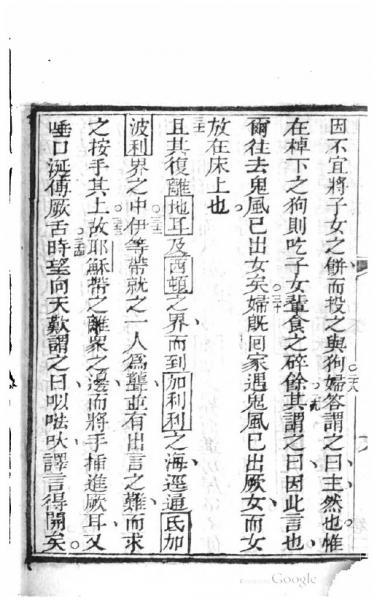 因不宜將子女之餅而投之與狗婦答謂之曰主然也惟
二八
在棹下之狗則吃子女輩食之碎餘其謂之曰因此言也
二九
爾往去鬼風已出女矣婦旣回家遇鬼風已出厥女而女
三十
放在床上也
三一
且其復離地耳及西頓之界而到加利利之海逕通氏加
波利界之中伊等帶就之一人為聾並有出言之難而求
三二
之按手其上故耶穌帶之離衆之邊而將手插進厥耳又
三三
唾口涎傅厥舌時望向天歎謂之曰㕽𠲿吠譯言得開矣
三四
Google